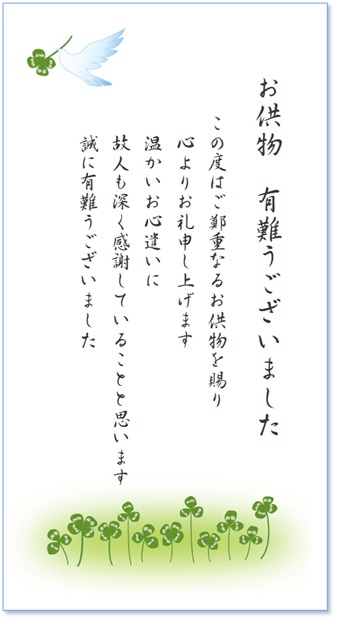 お供物　有難うございました
この度はご鄭重なるお供物を賜り
心よりお礼申し上げます
温かいお心遣いに
故人も深く感謝していることと思います
誠に有難うございました